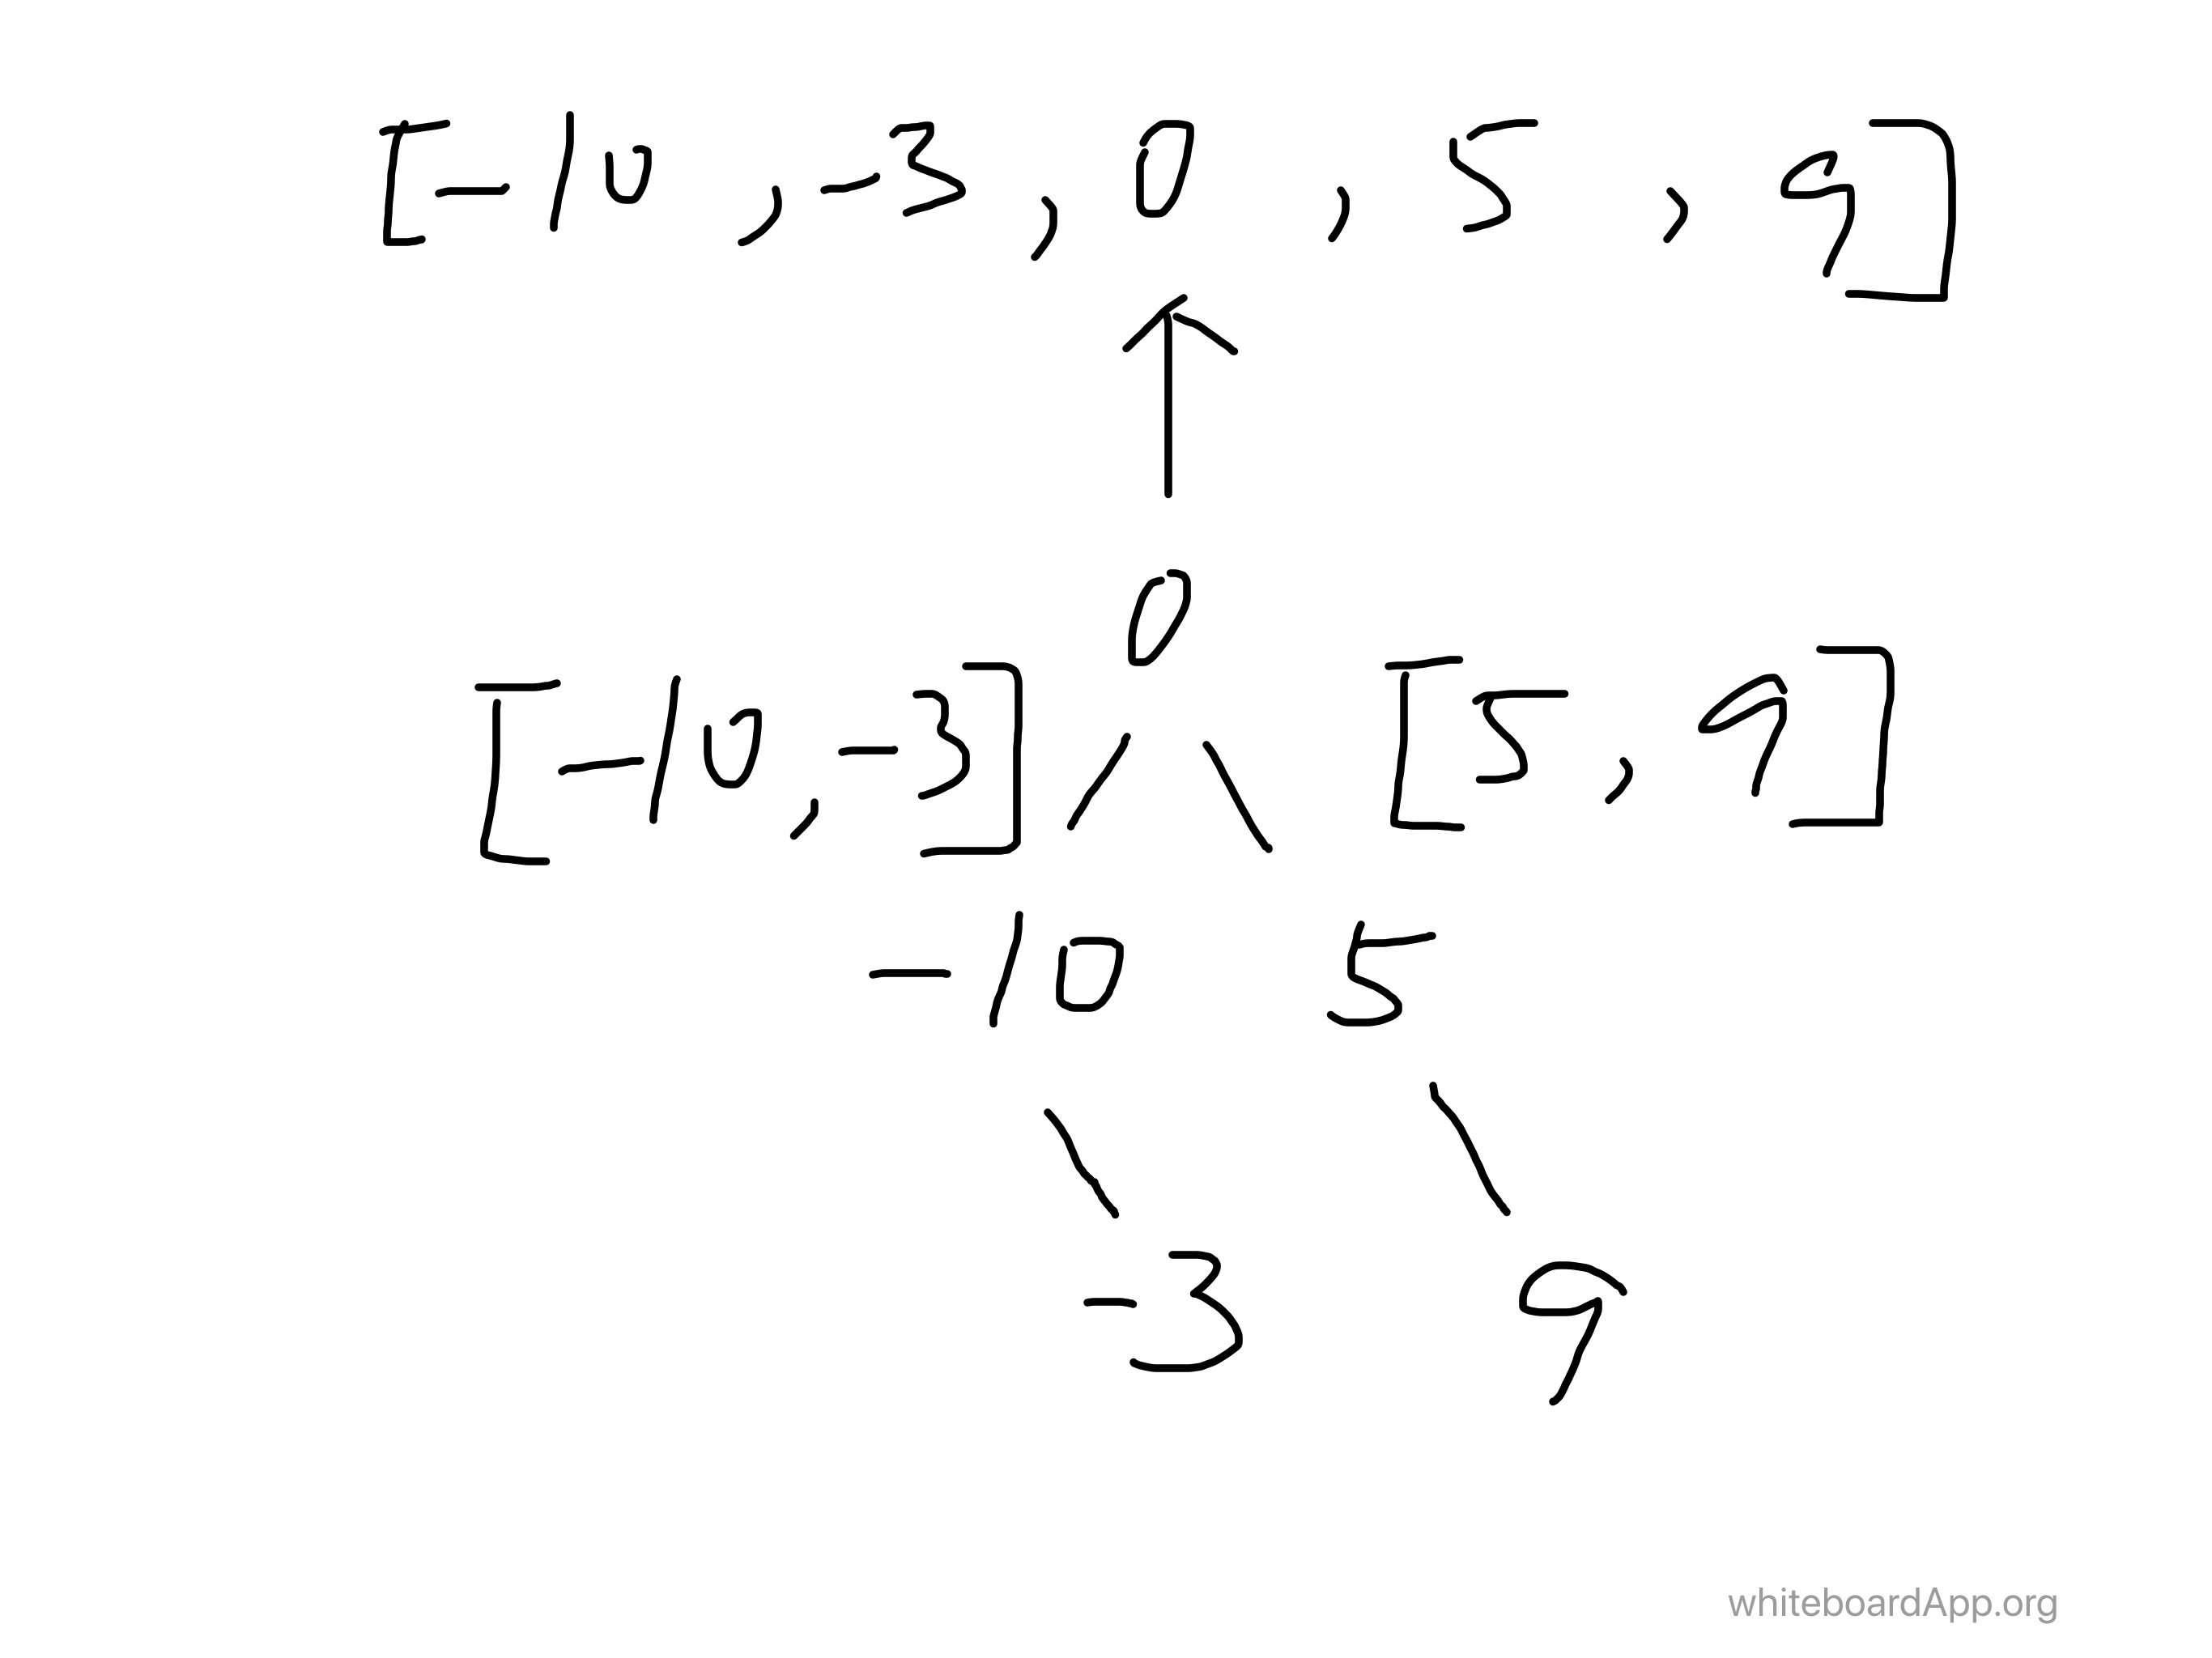 [-10, -3, 0, 5, 9]
0
[-10, -3] [5, 9]
-10 5
-3 9
whiteboardApp.org